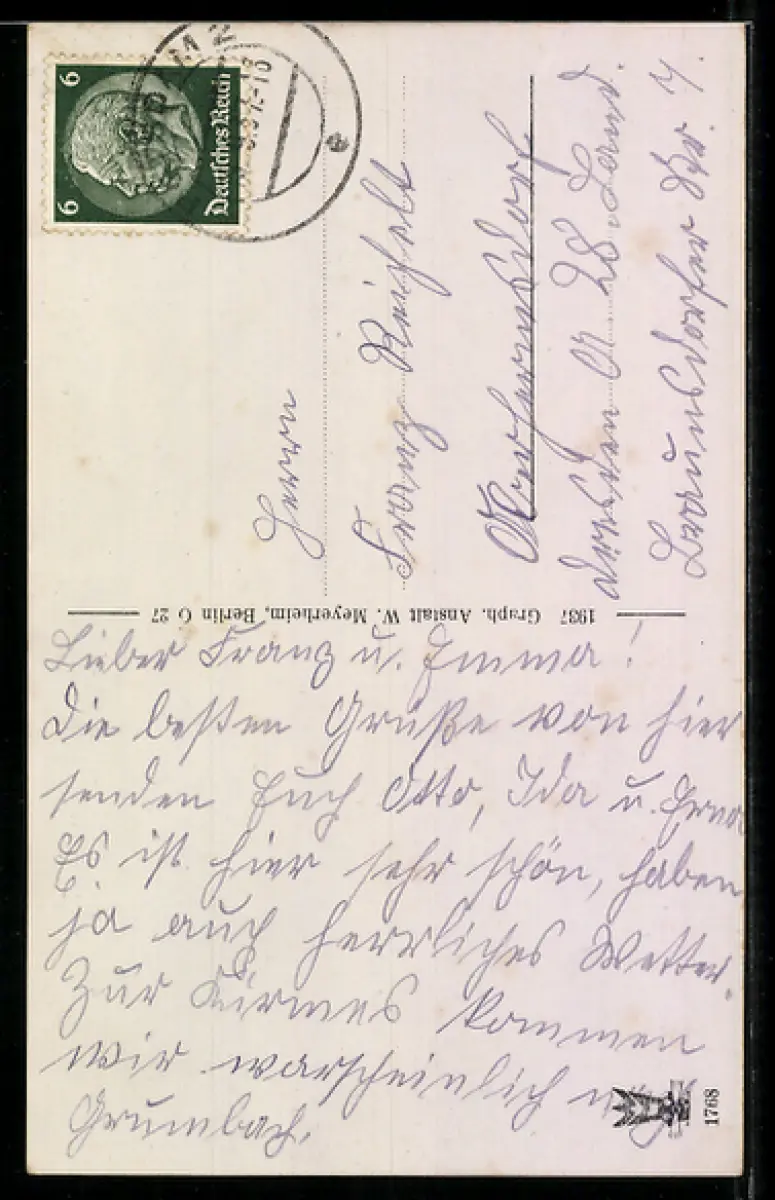 6
6
Deutsches Reich
Herrn
Franz Reichelt
Oberhermsdorf
Dresden A 28 Land.
Braunsdorfer Str. 7.
1937 Graph. Anstalt W. Meyerheim, Berlin O 27
Lieber Franz u. Emma!
Die besten Grüße von hier
senden Euch Otto, Ida u. Erna
Es ist hier sehr schön, haben
ja auch herrliches Wetter.
Zur Kirmes kommen
wir warscheinlich nach
Grumbach.
1768